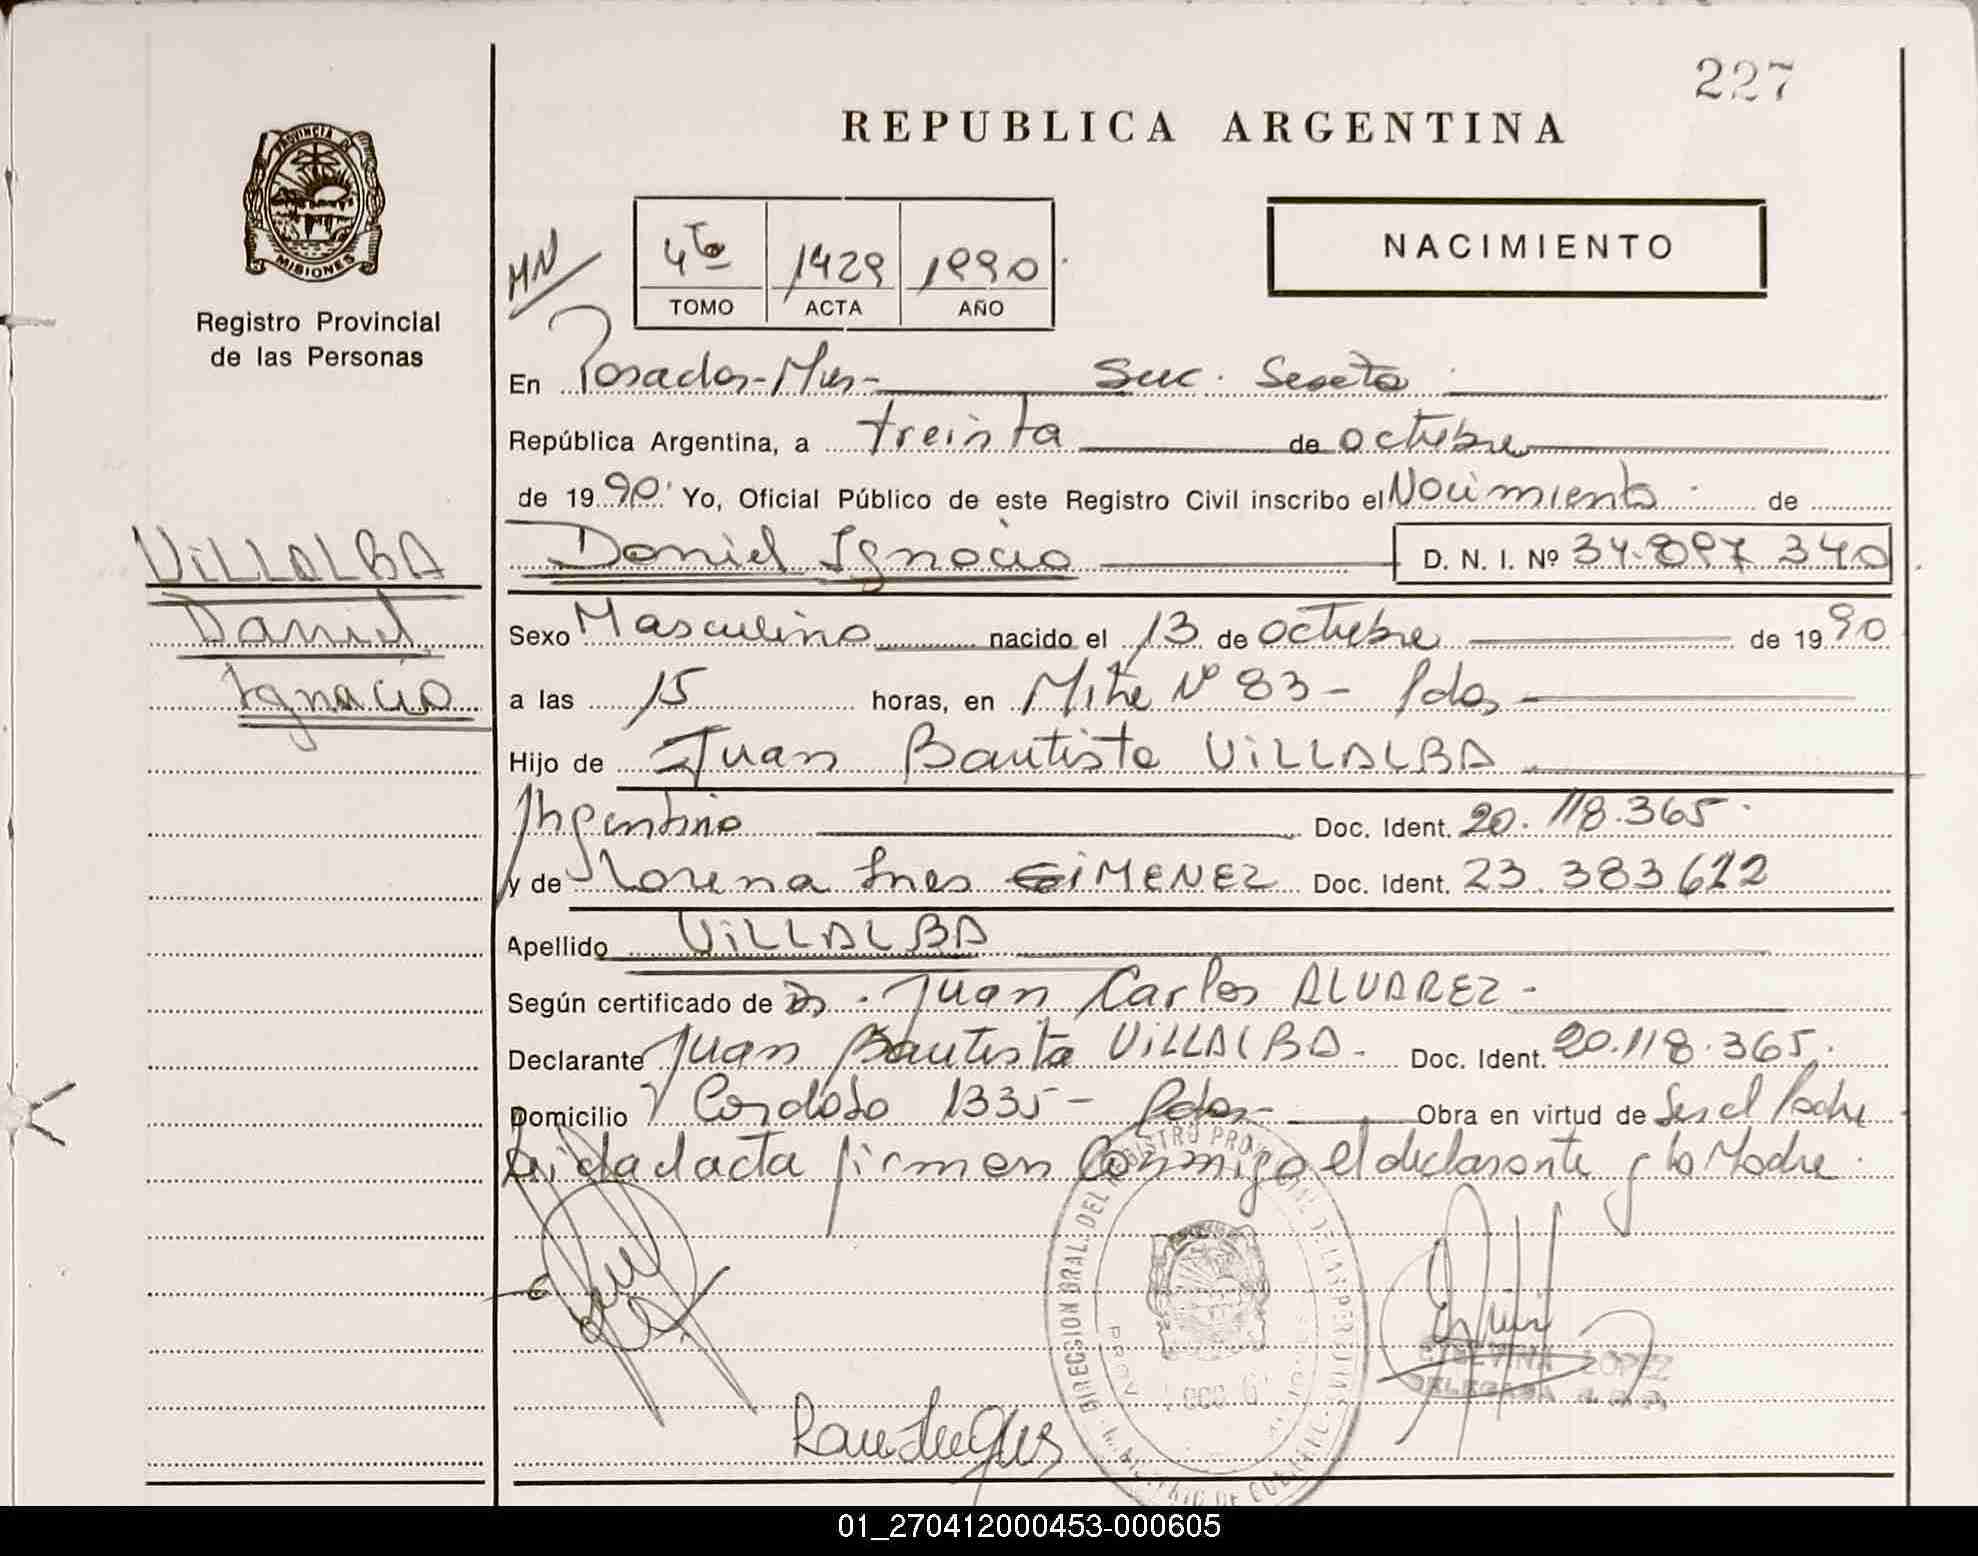 227
REPUBLICA ARGENTINA
PROVINCIA DE
MISIONES
Registro Provincial
de las Personas
HN
4to 1429 1990
TOMO ACTA AÑO
NACIMIENTO
En Posadas-Mnes- Suc. Sexta
República Argentina, a treinta de octubre
de 1990 Yo, Oficial Público de este Registro Civil inscribo el Nacimiento de
Daniel Ignacio D. N. I. Nº 34.897 340
VILLALBA
Daniel
Ignacio
Sexo Masculino nacido el 13 de octubre de 1990
a las 15 horas, en Mitre Nº 83 - Pdas
Hijo de Juan Bautista VILLALBA
Argentino Doc. Ident. 20.118.365
y de Lorena Ines GIMENEZ Doc. Ident. 23.383 612
Apellido VILLALBA
Según certificado de Dr. Juan Carlos ALVAREZ -
Declarante Juan Bautista VILLALBA - Doc. Ident. 20.118.365.
Domicilio Cordoba 1335 - Pdas - Obra en virtud de Ser el Padre
Leida el acta firman Conmigo el declarante y la Madre.
DIRECCION GRAL. DEL REGISTRO PROVINCIAL DE LAS PERSONAS
LOPEZ
DELEGADA
01_270412000453-000605